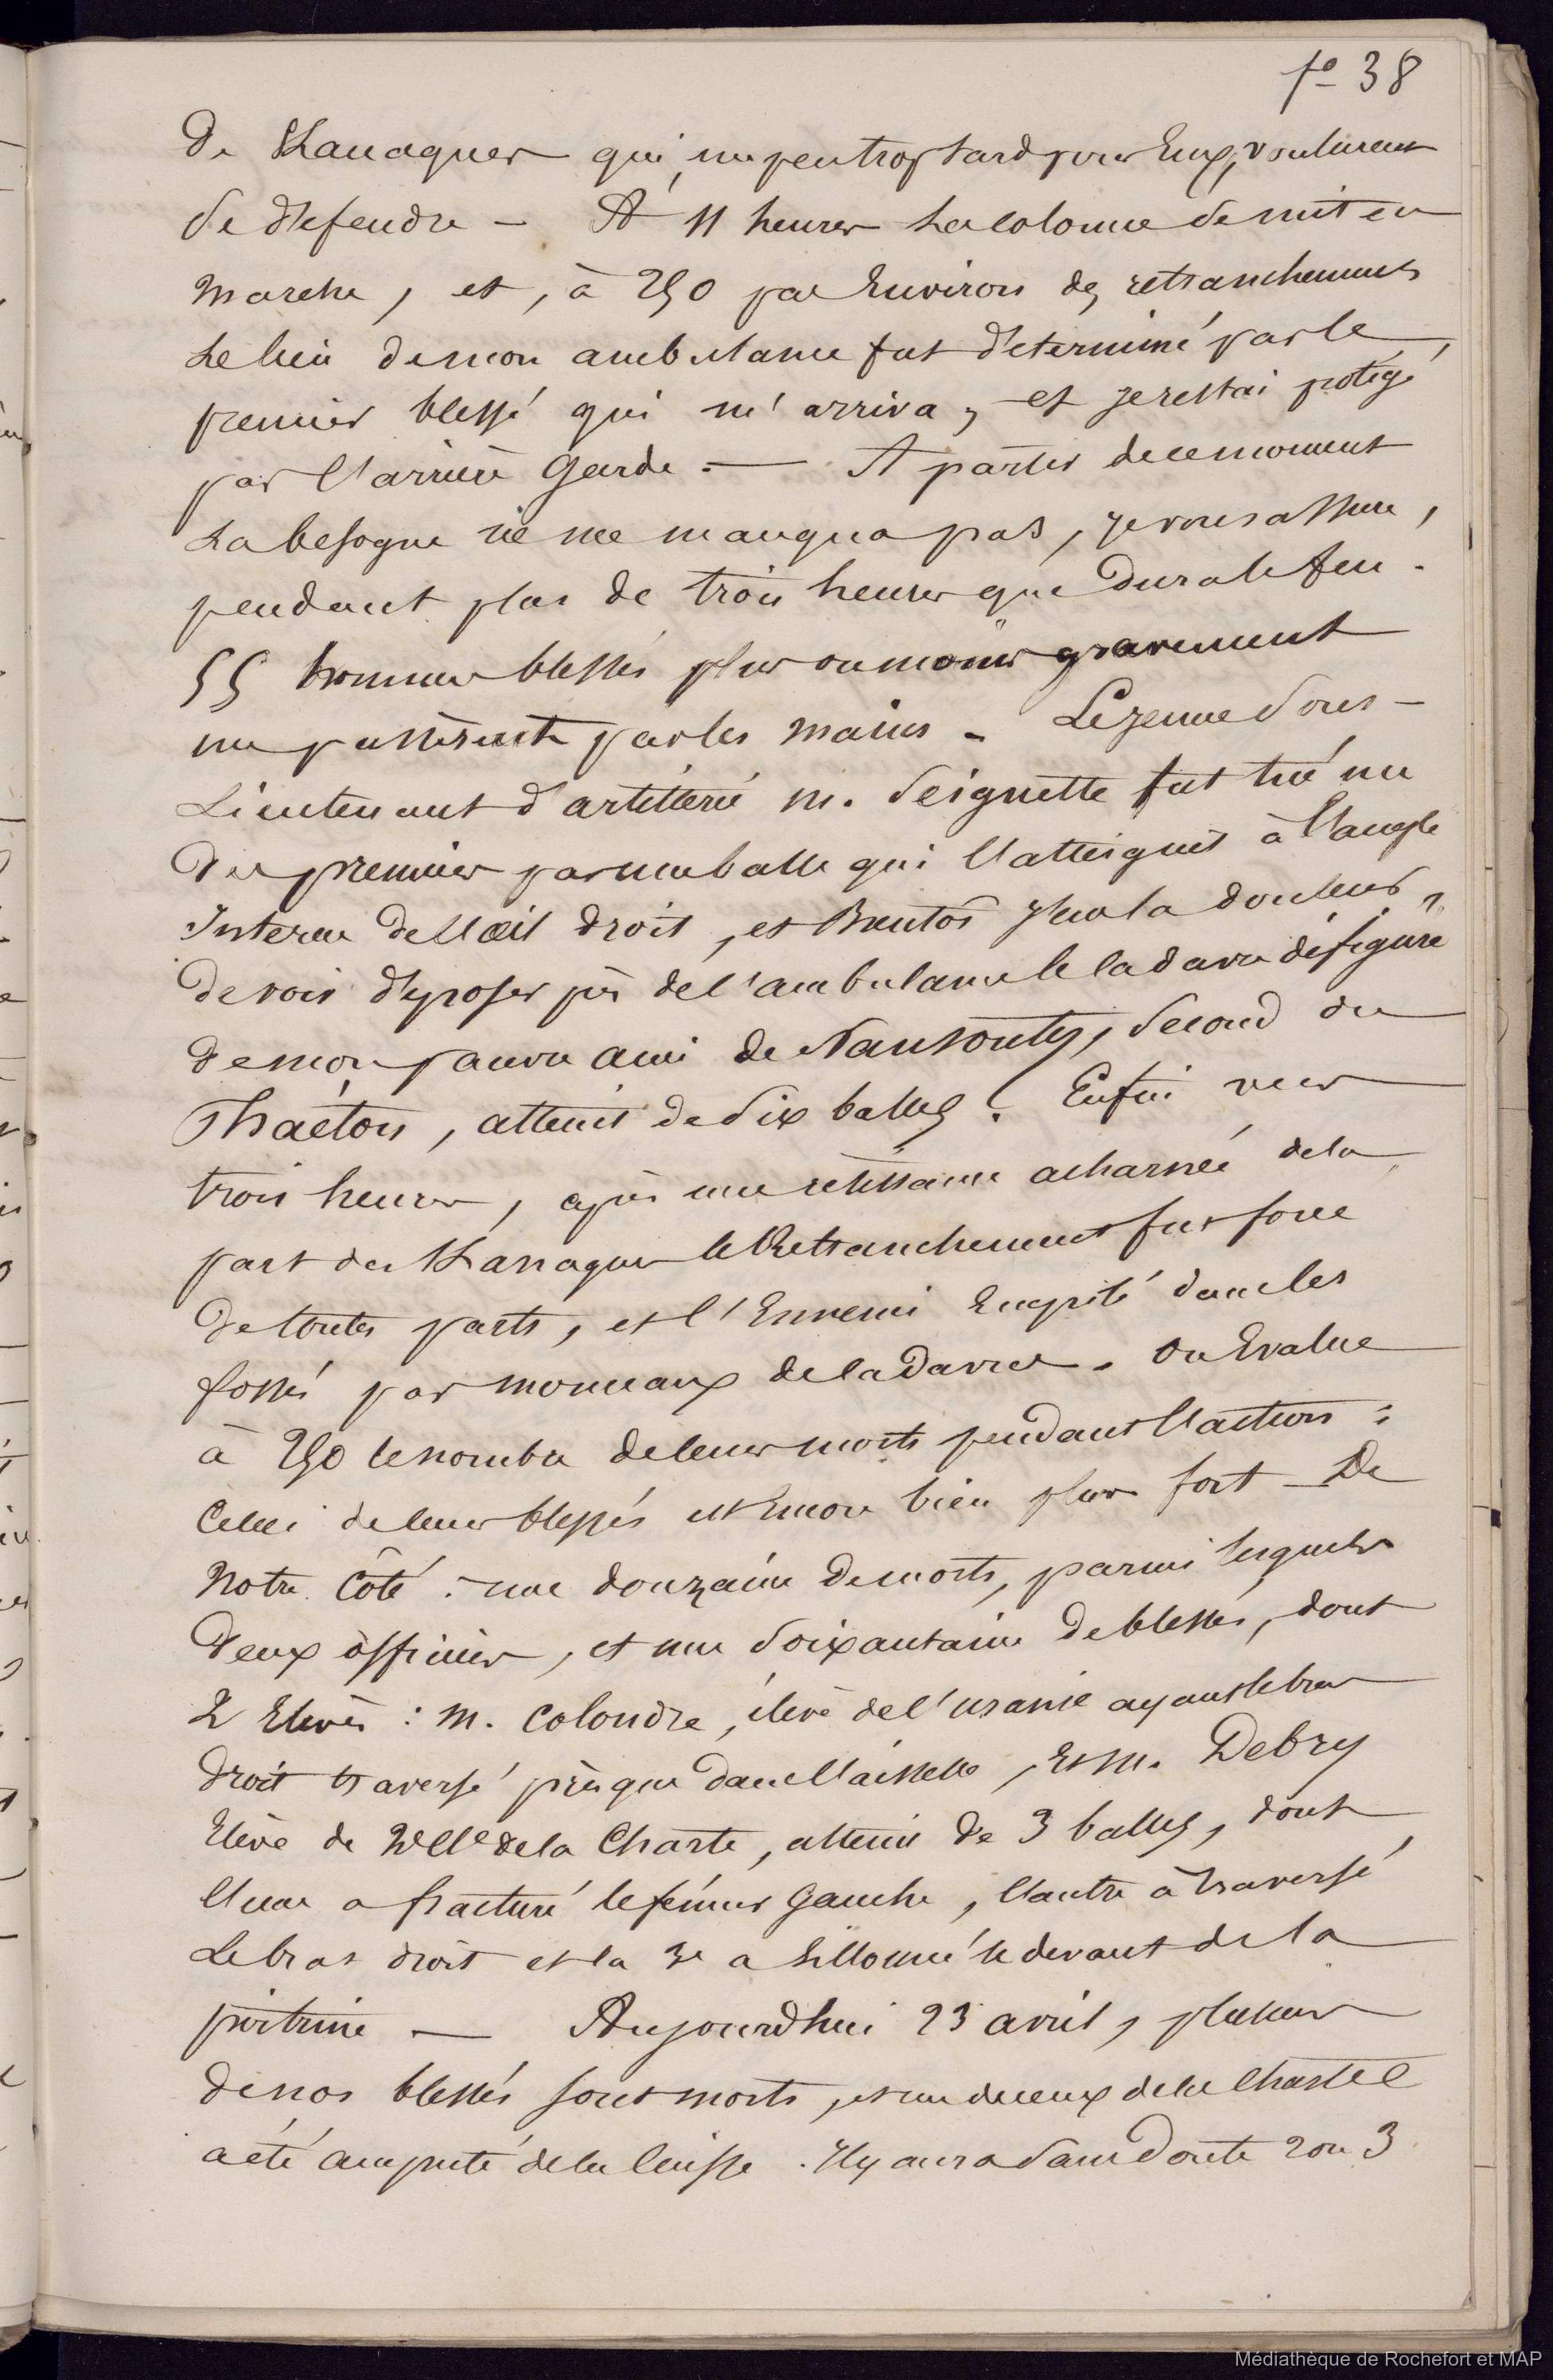 fo 38
de Kanaques qui, un peu trop tard pour Eux, voulurent
se defendre — A 11 heures la colonne se mit en
marche, et, à 250 pas Environ des retranchements
le lieu de mon ambulance fut determiné par le
premier blessé qui m'arriva, et je restai protégé
par l'arrière Garde. — A partir de ce moment
La besogne ne me manqua pas, je vous assure,
pendant plus de trois heures que dura le feu.
55 hommes blessés plus ou moins gravement
me passèrent par les mains. Le jeune Sous-
Lieutenant d'artillerie M. Seignette fut tué un
des premiers par une balle qui l'atteignit à l'angle
Interne de l'œil droit, et Bientôt j'eus la douleur
de voir déposer près de l'ambulance le cadavre défiguré
de mon pauvre ami de Nansouty, Second du
Phaëton, atteint de Six balles. Enfin vers
trois heures, après une résistance acharnée de la
part des Kanaques le Retranchement fut forcé
de toutes parts, et l'Ennemi Empilé dans les
fossés par monceaux de cadavres. On Evalue
à 250 le nombre de leurs morts pendant l'action :
Celui de leurs blessés est Encore bien plus fort — De
Notre Côté : une douzaine de morts, parmi lesquels
deux officiers, et une Soixantaine de blessés, dont
2 Elèves : M. Colondre, élève de l'uranie ayant le bras
droit traversé presque dans l'aisselle, Et M. Debry
Elève de 2e Cle de la Charte, atteint de 3 balles, dont
l'une a fracturé le fémur Gauche, l'autre à traversé
Le bras droit et la 3e a sillonné le devant de la
poitrine — Aujourdhui 23 avril, plusieurs
de nos blessés sont morts, et un de ceux de la Charte
a été amputé de la Cuisse. Il y aura Sans Doute 2 ou 3
Médiathèque de Rochefort et MAP